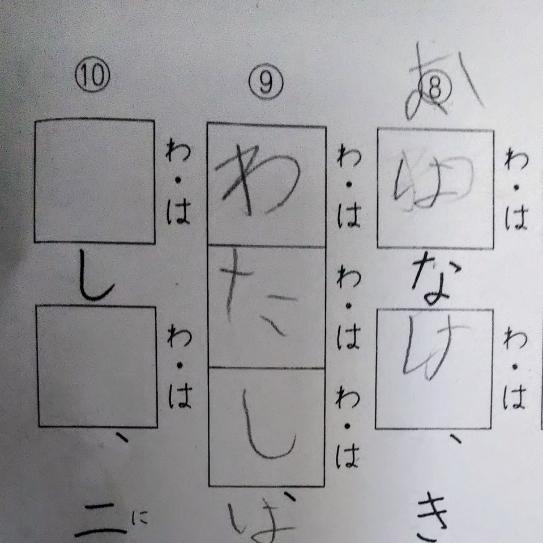 ⑧
お
は わ・は
な
は わ・は
、
き
⑨
わ わ・は
た わ・は
し わ・は
ば
⑩
わ・は
し
わ・は
、
二に